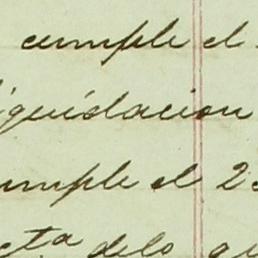 cumple el
liquidacion
cumple el 2
cta delo q